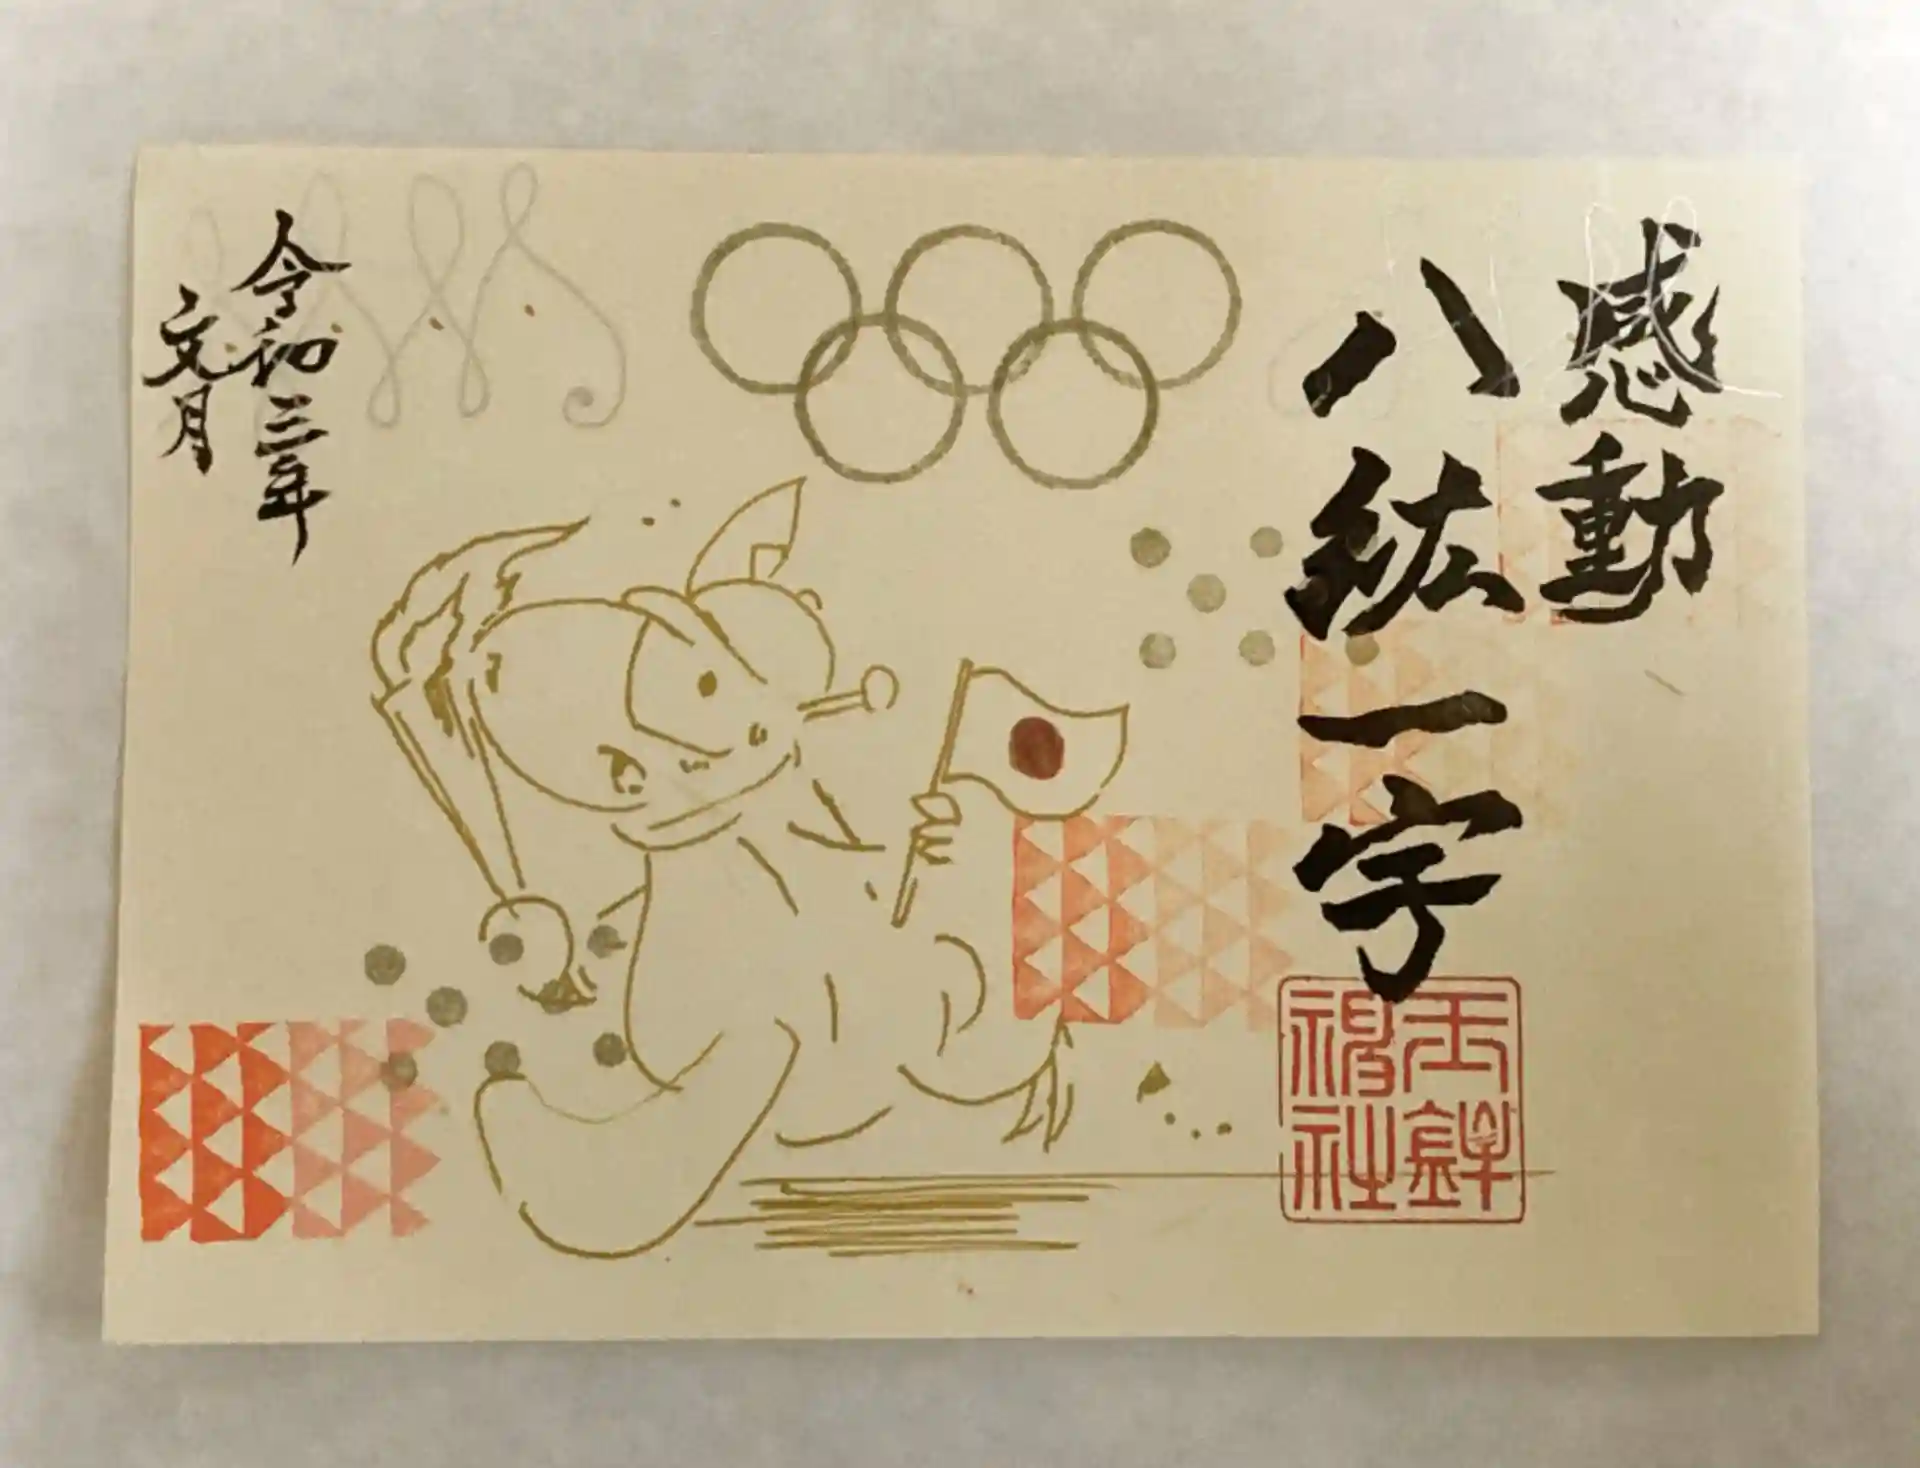 感動
八紘一宇
玉鉾
神社
令和三年
文月